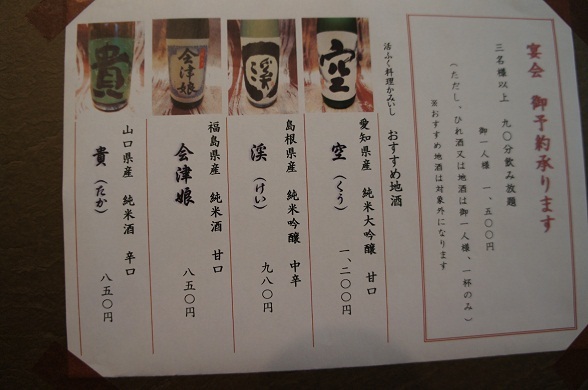 宴会 御予約承ります
三名様以上 九〇分飲み放題
御一人様 一、五〇〇円
(ただし、ひれ酒又は地酒は御一人様、一杯のみ)
※おすすめ地酒は対象外になります
活ふく料理かみいし おすすめ地酒
空
愛知県産 純米大吟醸 甘口
空(くう) 一、二〇〇円
渓
島根県産 純米吟醸 中辛
渓(けい) 九八〇円
会津娘
福島県産 純米酒 甘口
会津娘 八五〇円
貴
山口県産 純米酒 辛口
貴(たか) 八五〇円